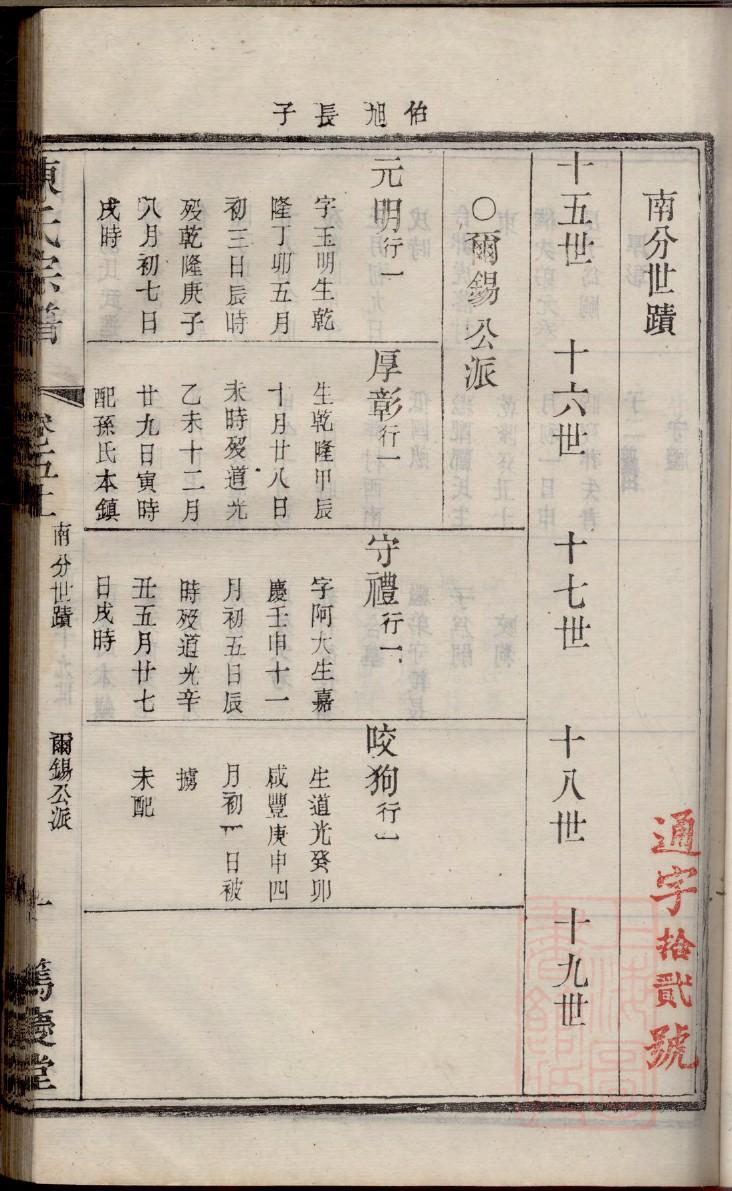 佑旭長子
南分世蹟
十五世 十六世 十七世 十八世 十九世
○爾錫公派
元明行一
字玉明生乾
隆丁卯五月
初三日辰時
歿乾隆庚子
八月初七日
戌時
厚彰行一
生乾隆甲辰
十月廿八日
未時歿道光
乙未十二月
廿九日寅時
配孫氏本鎮
守禮行一
字阿大生嘉
慶壬申十一
月初五日辰
時歿道光辛
丑五月廿七
日戌時
咬狗行一
生道光癸卯
咸豐庚申四
月初一日被
擄
未配
陳氏宗譜
卷之五上
南分世蹟
爾錫公派
篤慶堂
通字拾貳號
上海圖書館藏